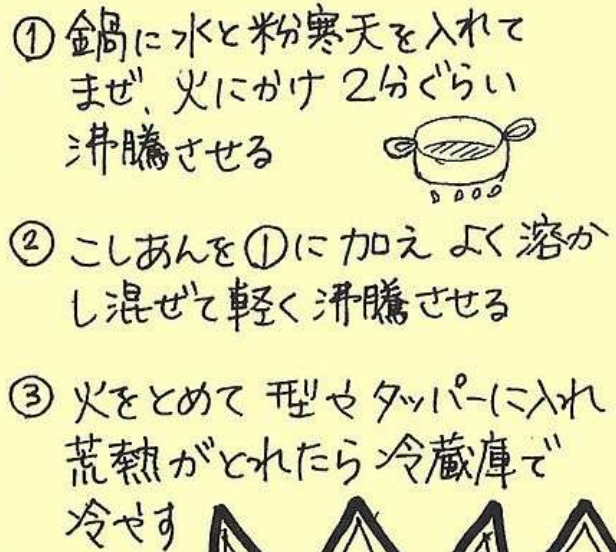 ① 鍋に水と粉寒天を入れて
まぜ、火にかけ 2分ぐらい
沸騰させる
② こしあんを①に加え よく溶か
し混ぜて軽く沸騰させる
③ 火をとめて 型やタッパーに入れ
荒熱がとれたら冷蔵庫で
冷やす